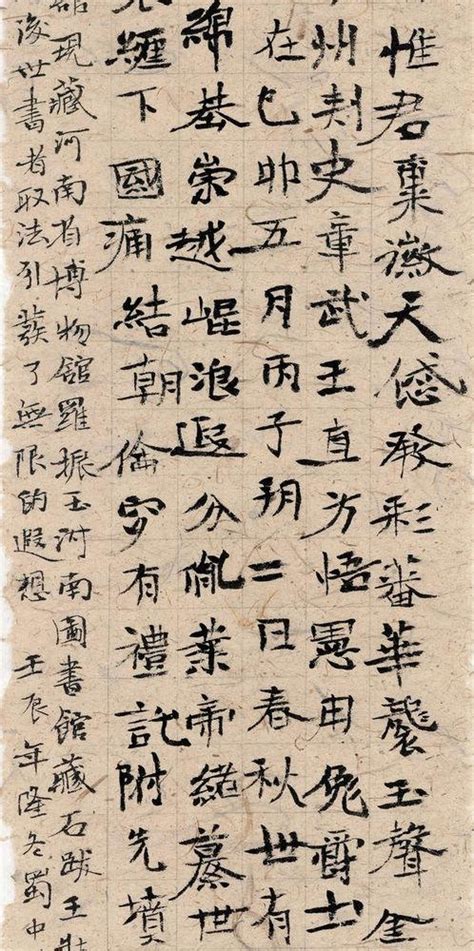 惟君稟徽天發彩蕃華襲玉聲金
州刺史章武王直方悟愚用免爵土
在己卯五月丙子朔二日春秋世有
綿基崇越崐浪遐分胤葉帝緒驀世
纏下國痛結朝倫穸有禮託附先墳
現藏河南省博物館羅振玉河南圖書館藏石跋王壯
後世書者取法引發了無限的遐想 壬辰年隆冬蜀中